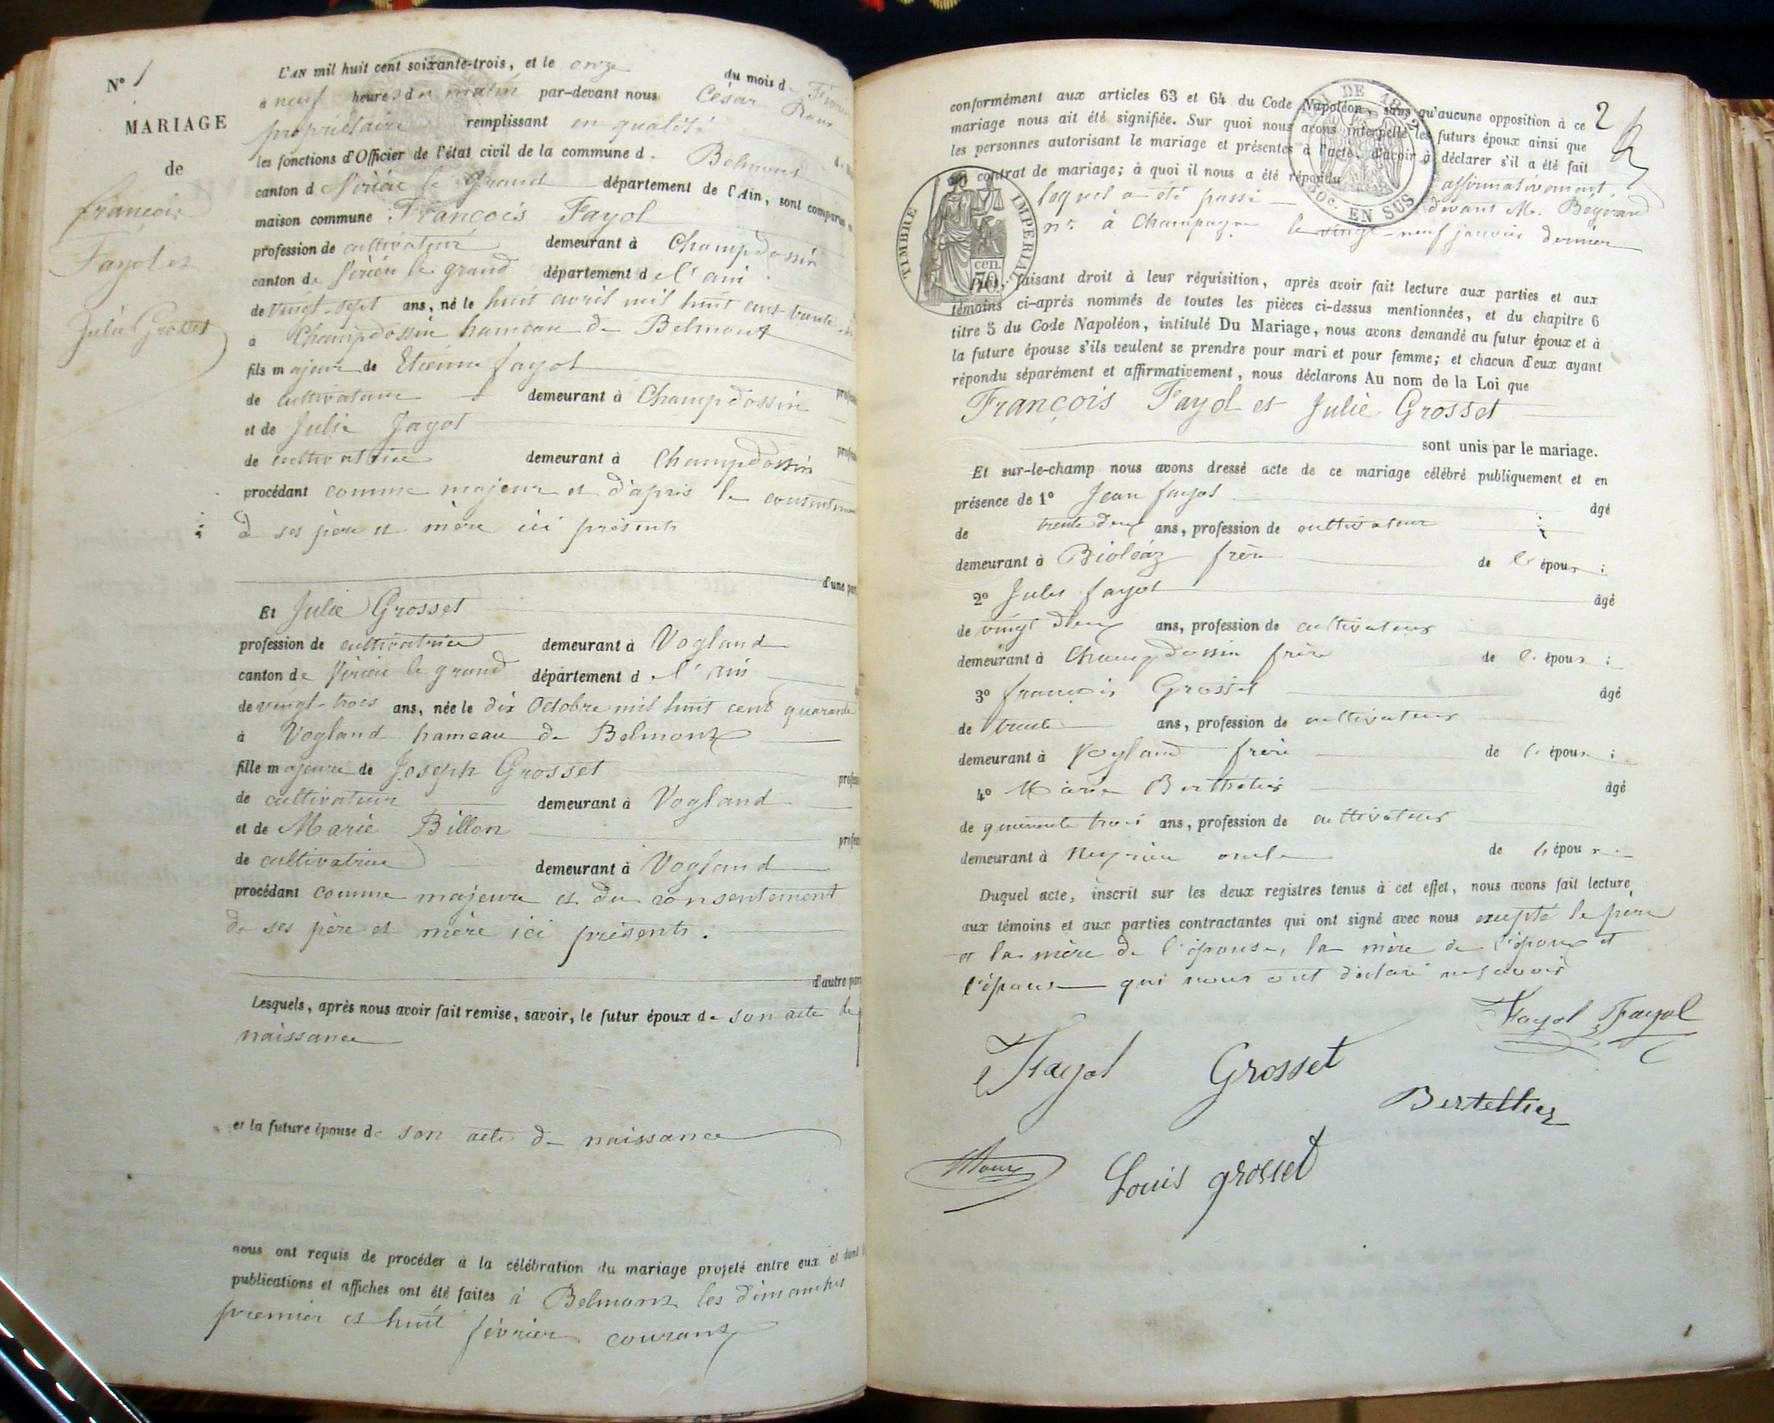 N° 1
MARIAGE
de
françois
Fayol et
Julie Grosset
L'AN mil huit cent soixante-trois, et le onze du mois de Février
à neuf heures du matin par-devant nous César Roux
propriétaire remplissant en qualité
les fonctions d'Officier de l'état civil de la commune d. Belmont
canton d Virieu le Grand département de l'Ain, sont comparus
maison commune François Fayol
profession de cultivateur demeurant à Champdossin
canton de Virieu le grand département de l'ain
de vingt-sept ans, né le huit avril mil huit cent trente
à Champdossin hameau de Belmont
fils majeur de Etienne fayol
de cultivateur demeurant à Champdossin
et de Julie Jayot
de cultivatrice demeurant à Champdossin
procédant comme majeur et d'après le consentement
de ses père et mère ici présents
d'une part
Et Julie Grosset
profession de cultivatrice demeurant à Vogland
canton de Virieu le grand département de l'ain
de vingt-trois ans, née le dix Octobre mil huit cent quarante
à Vogland hameau de Belmont
fille majeure de Joseph Grosset
de cultivateur demeurant à Vogland
et de Marie Billon
de cultivatrice demeurant à Vogland
procédant comme majeure et du consentement
de ses père et mère ici présents.
d'autre part
Lesquels, après nous avoir fait remise, savoir, le futur époux de son acte de
naissance
et la future épouse de son acte de naissance
nous ont requis de procéder à la célébration du mariage projeté entre eux et dont
publications et affiches ont été faites à Belmont les dimanches
premier et huit février courant
2
conformément aux articles 63 et 64 du Code Napoléon, sans qu'aucune opposition à ce
mariage nous ait été signifiée. Sur quoi nous avons interpellé les futurs époux ainsi que
les personnes autorisant le mariage et présentes à l'acte, d'avoir à déclarer s'il a été fait
un contrat de mariage; à quoi il nous a été répondu affirmativement.
lequel a été passé devant M. Bégérand
nre à Champagne le vingt-neuf janvier dernier
TIMBRE IMPERIAL
50 cen.
EN SUS
faisant droit à leur réquisition, après avoir fait lecture aux parties et aux
témoins ci-après nommés de toutes les pièces ci-dessus mentionnées, et du chapitre 6
titre 5 du Code Napoléon, intitulé Du Mariage, nous avons demandé au futur époux et à
la future épouse s'ils veulent se prendre pour mari et pour femme; et chacun d'eux ayant
répondu séparément et affirmativement, nous déclarons Au nom de la Loi que
François Fayol et Julie Grosset
sont unis par le mariage.
Et sur-le-champ nous avons dressé acte de ce mariage célébré publiquement et en
présence de 1° Jean fayol âgé
de trente deux ans, profession de cultivateur
demeurant à Bioléaz frère de l'époux;
2° Jules fayol âgé
de vingt deux ans, profession de cultivateur
demeurant à Champdossin frère de l'époux;
3° françois Grosset âgé
de trente ans, profession de cultivateur
demeurant à Vogland frère de l'épouse;
4° Marie Berthelier âgé
de quarante trois ans, profession de cultivateur
demeurant à oncle de l'épou
Duquel acte, inscrit sur les deux registres tenus à cet effet, nous avons fait lecture
aux témoins et aux parties contractantes qui ont signé avec nous excepté le père
et la mère de l'épouse, la mère de l'époux et
l'épouse qui nous ont déclaré ne savoir
Fayol Fayol
Fayol Grosset
Bertellier
Roux Louis grosset